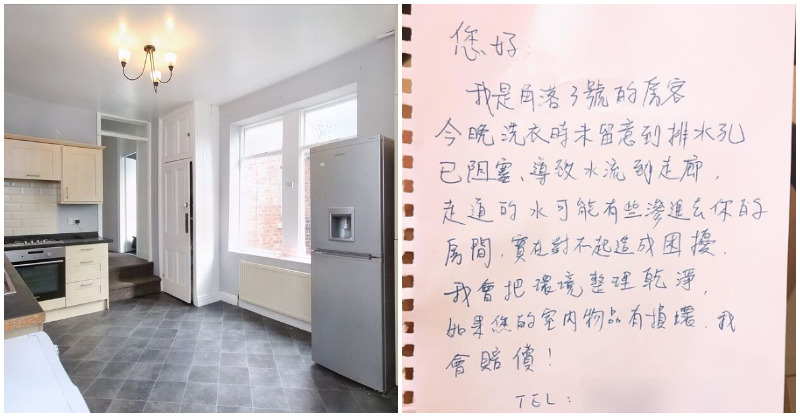 您好:
我是角落3號的房客
今晚洗衣時未留意到排水孔
已阻塞、導致水流到走廊,
走道的水可能有些滲進去你的
房間,實在對不起造成困擾.
我會把環境整理乾淨,
如果您的室內物品有損壞.我
會賠償!
TEL: